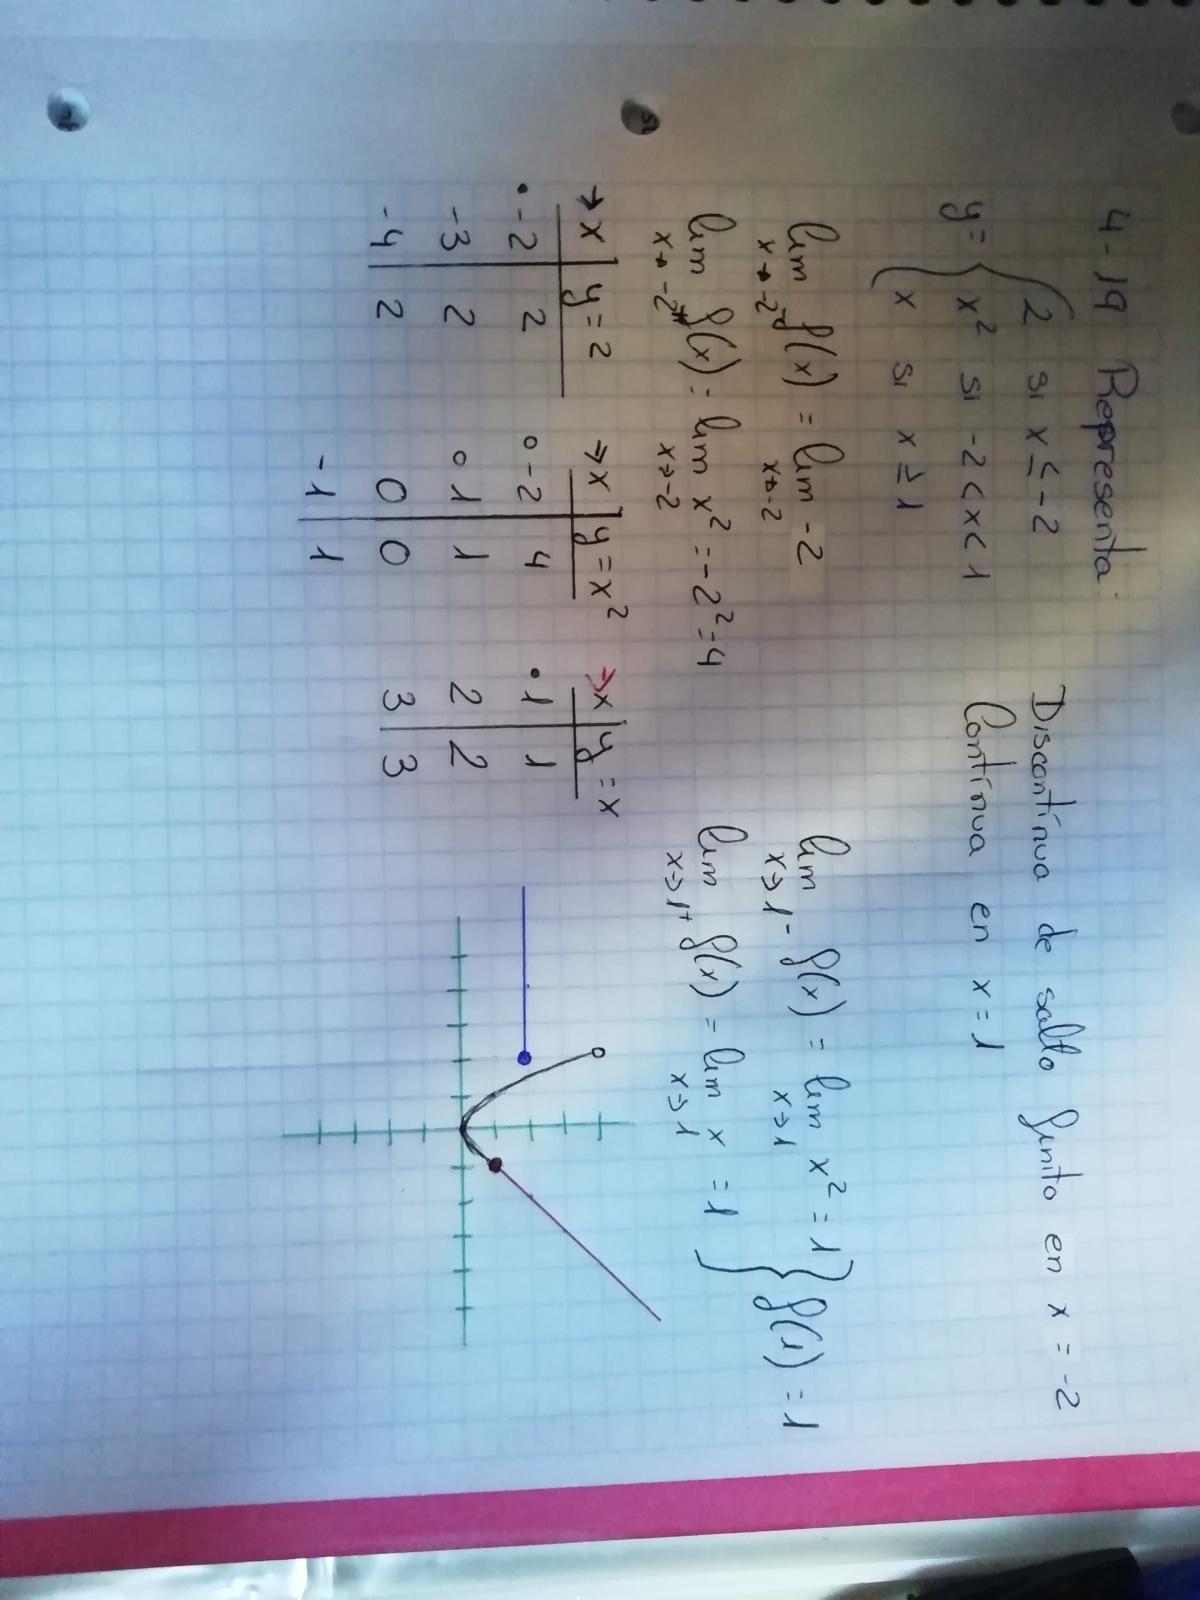 4-19 Representa:
y= { 2 si x ≤ -2
x² si -2 < x < 1
x si x ≥ 1
Discontínua de salto finito en x = -2
Contínua en x = 1
lim f(x) = lim -2
x→-2⁻ x→-2
lim f(x) = lim x² = -2² = 4
x→-2⁺ x→-2
lim f(x) = lim x² = 1
x→1⁻ x→1
lim f(x) = lim x = 1
x→1⁺ x→1
} f(1) = 1
→ x | y = 2
• -2 | 2
-3 | 2
-4 | 2
→ x | y = x²
○ -2 | 4
○ 1 | 1
0 | 0
-1 | 1
→ x | y = x
• 1 | 1
2 | 2
3 | 3